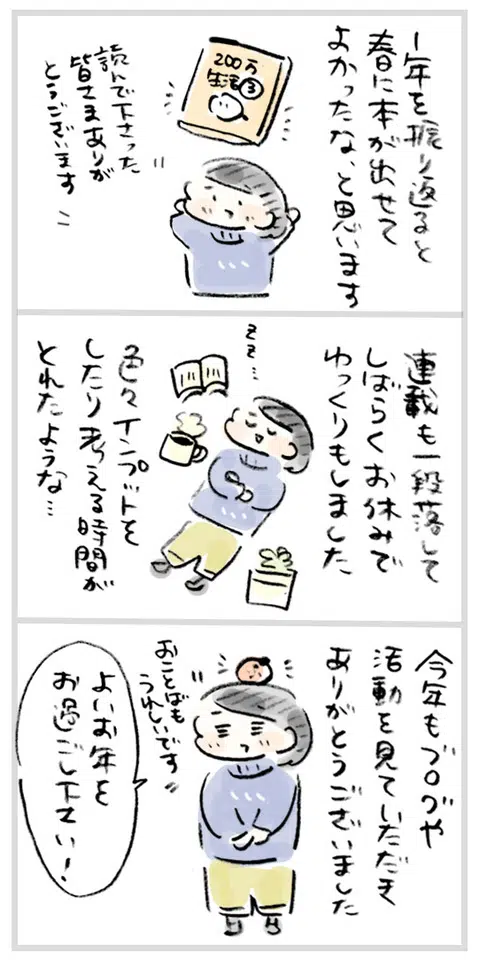 1年を振り返ると
春に本が出せて
よかったな、と思います
200万
生活③
読んで下さった
皆さまありが
とうございます
連載も一段落して
しばらくお休みで
ゆっくりもしました
zz…
色々インプットを
したり考える時間が
とれたような…
今年もブログや
活動を見ていただき
ありがとうございました
おことばも
うれしいです
よいお年を
お過ごし下さい!